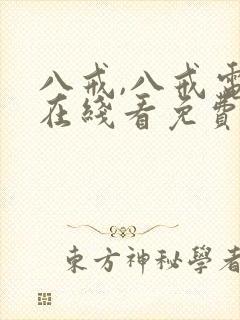 八戒,八戒電
在綫看免費
東方神秘學者